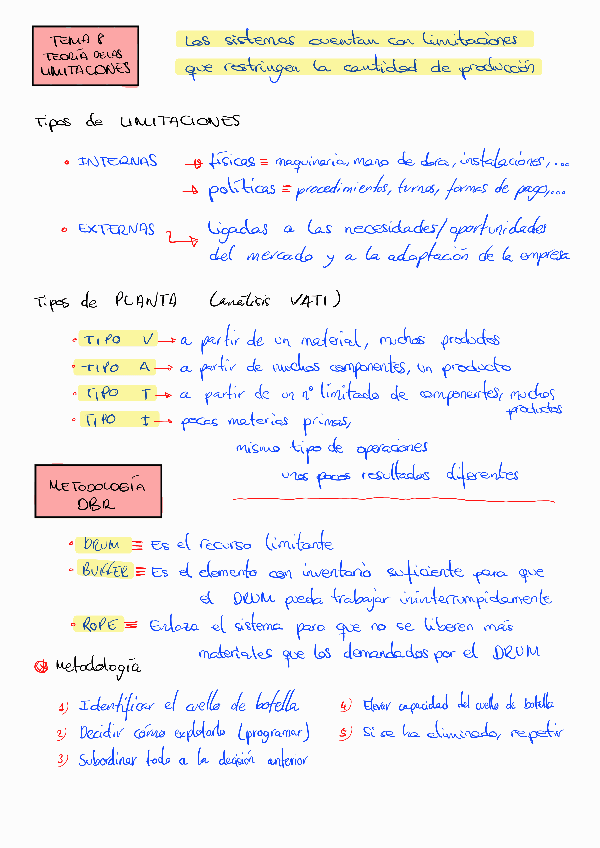 TEMA 8
TEORÍA DE LAS
LIMITACIONES
Los sistemas cuentan con limitaciones
que restringen la cantidad de producción
Tipos de LIMITACIONES
• INTERNAS → físicas ≡ maquinaria, mano de obra, instalaciones, ...
→ políticas ≡ procedimientos, turnos, formas de pago, ...
• EXTERNAS → ligadas a las necesidades/oportunidades
del mercado y a la adaptación de la empresa
Tipos de PLANTA (análisis VATI)
• TIPO V → a partir de un material, muchos productos
• TIPO A → a partir de muchos componentes, un producto
• TIPO T → a partir de un nº limitado de componentes, muchos
productos
• TIPO I → pocas materias primas,
mismo tipo de operaciones
unos pocos resultados diferentes
METODOLOGÍA
DBR
• DRUM ≡ Es el recurso limitante
• BUFFER ≡ Es el elemento con inventario suficiente para que
el DRUM pueda trabajar ininterrumpidamente
• ROPE ≡ Enlaza el sistema para que no se liberen más
materiales que los demandados por el DRUM
Metodología
1) Identificar el cuello de botella
2) Decidir cómo explotarlo (programar)
3) Subordinar todo a la decisión anterior
4) Elevar capacidad del cuello de botella
5) Si se ha eliminado, repetir